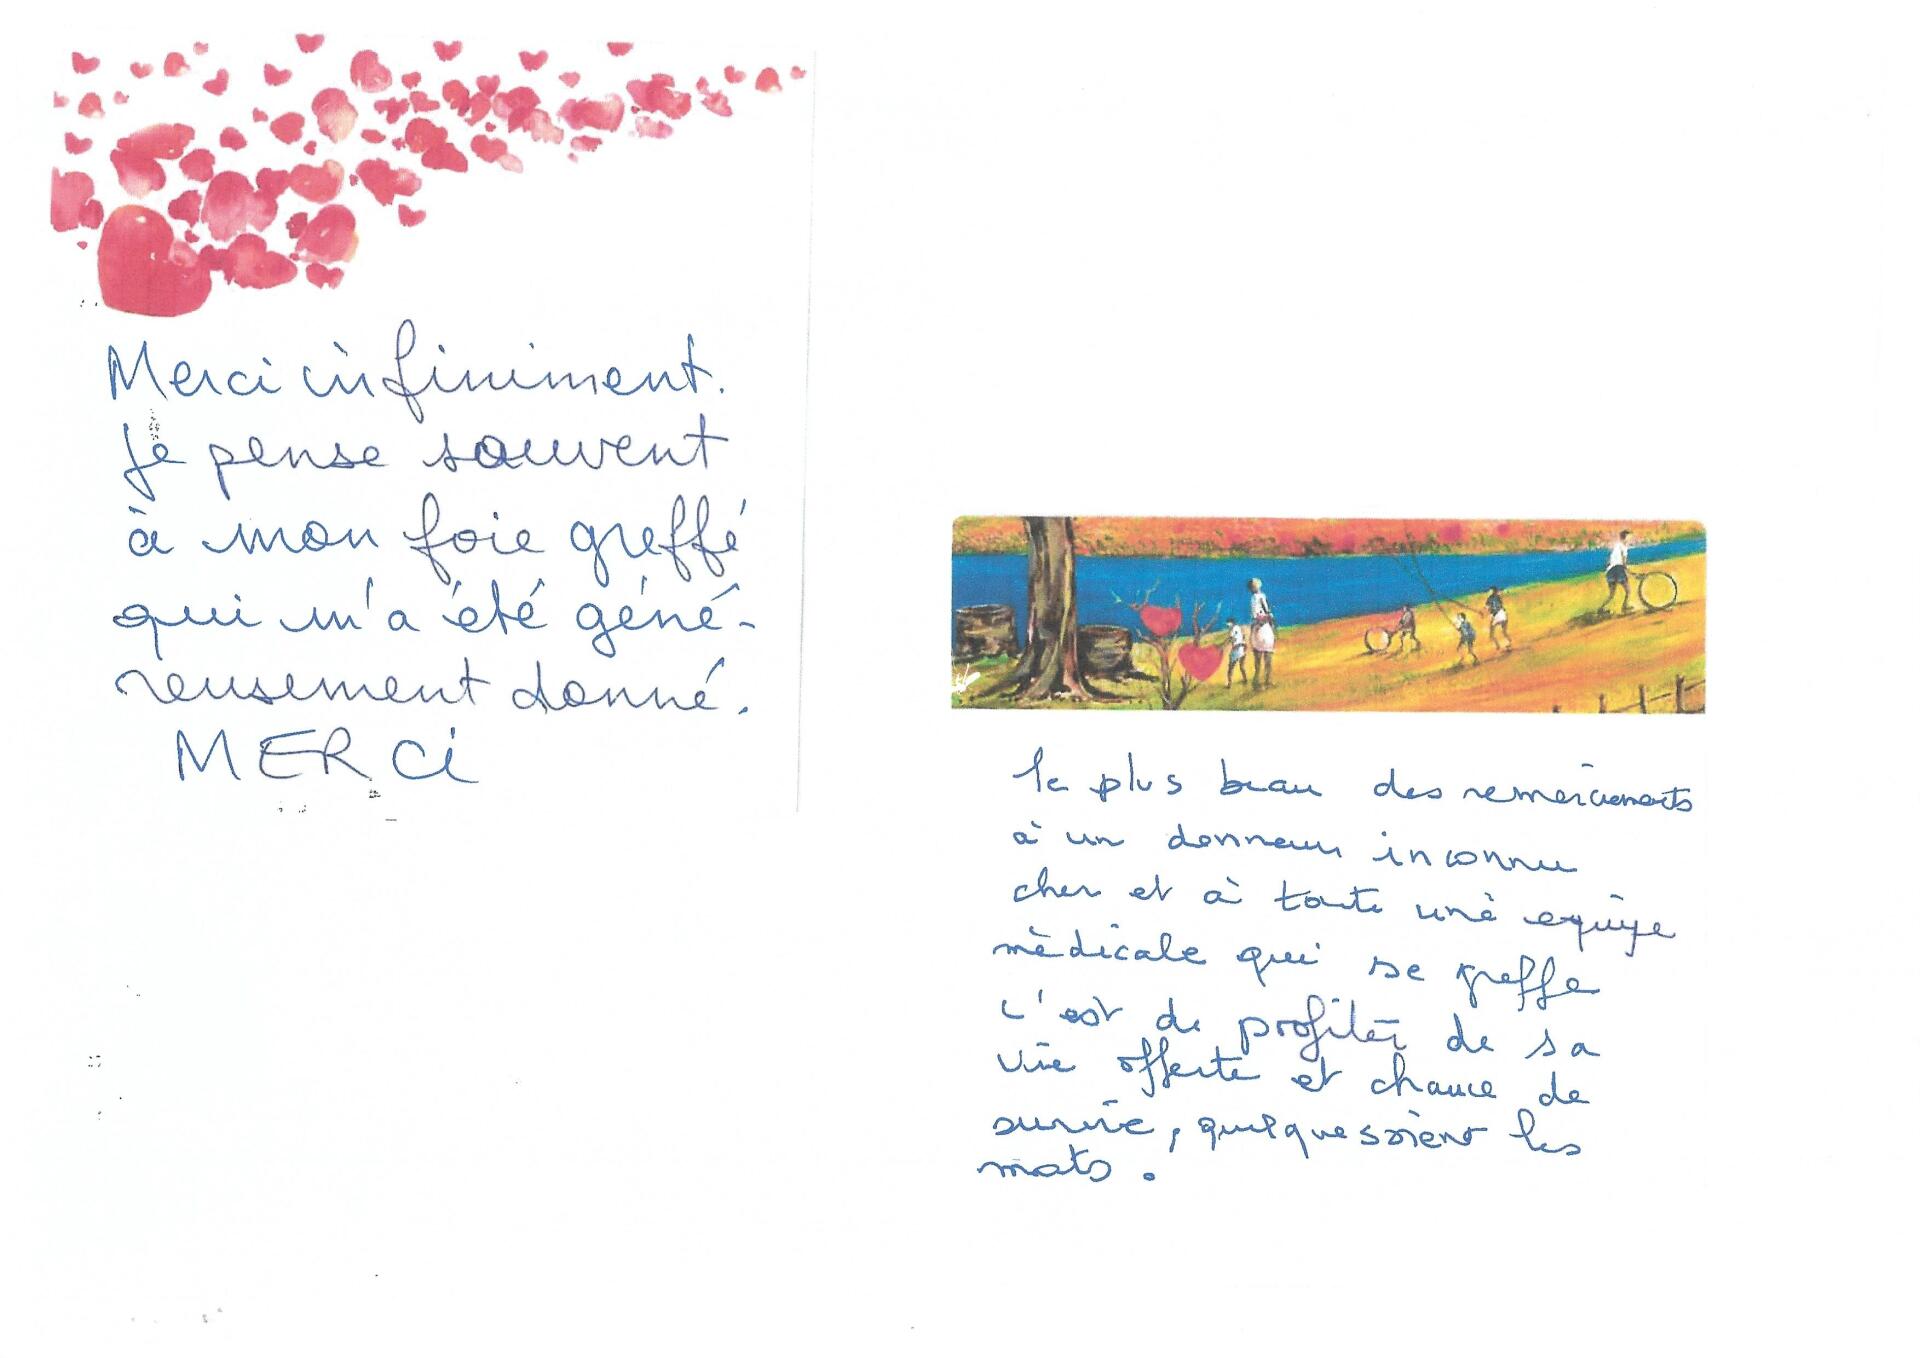 Merci infiniment.
Je pense souvent
à mon foie greffé
qui m'a été géné-
reusement donné.
MERCi
le plus beau des remerciements
à un donneur inconnu
cher et à toute une equipe
médicale qui se greffe
c'est de profiter de sa
vie offerte et chance de
survie, quelque soient les
mots.